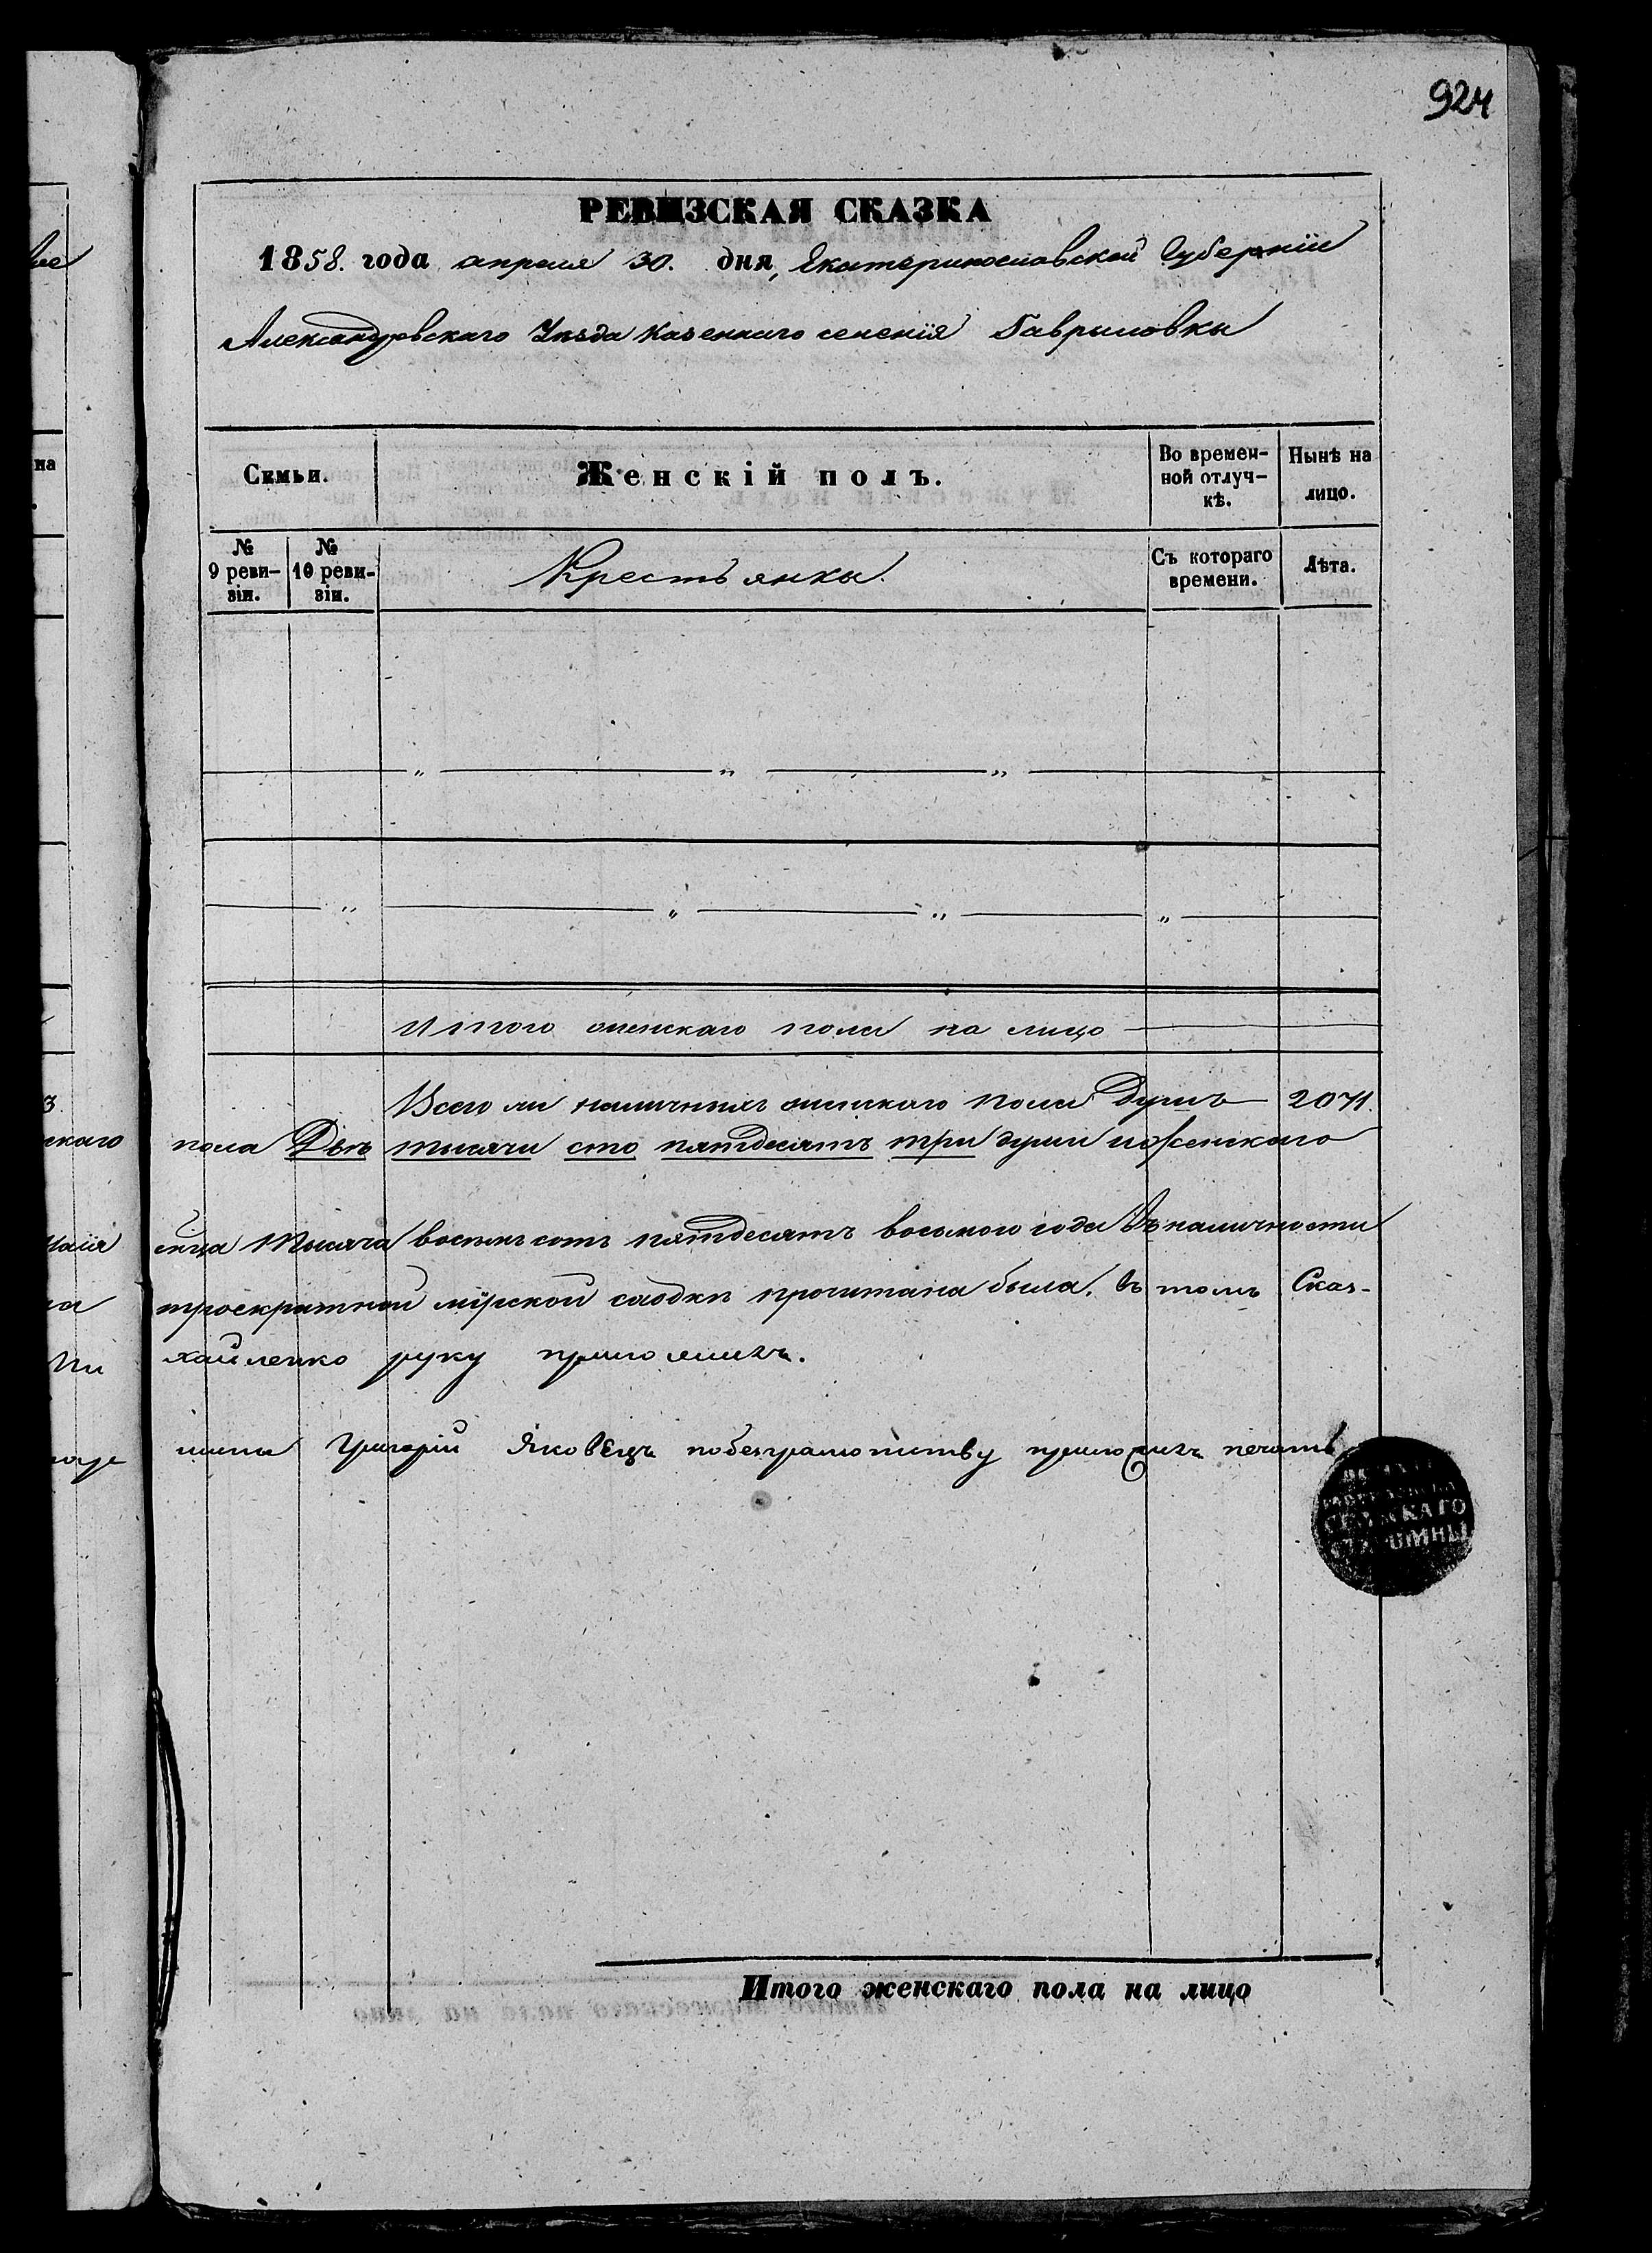 924
РЕВИЗСКАЯ СКАЗКА
1858. года апреля 30. дня, Екатеринославской Губернїи
Александровскаго Уѣзда казеннаго селенїя Гаврыловки
Семьи.
Женскій полъ.
Во времен-
ной отлуч-
кѣ.
Нынѣ на
лицо.
№
9 реви-
зіи.
№
10 реви-
зіи.
Крестьянки.
Съ котораго
времени.
Лѣта.
Итого женскаго пола на лицо
Всего ли наличныхъ женскаго пола Душъ 2071.
пола Двѣ тысячи сто пятдесятъ три души и женскаго
тысяча восемь сотъ пятдесятъ восьмого года въ наличности
троекратной мїрской сходкѣ прочитана была. въ томъ Сказ-
хайленко руку приложилъ.
шина Григорій Яковецъ по безграмотству приложилъ печать
СЕЛЬСКАГО
СТАРШИНЫ
Итого женскаго пола на лицо
наго
скаго
на
3.
ми